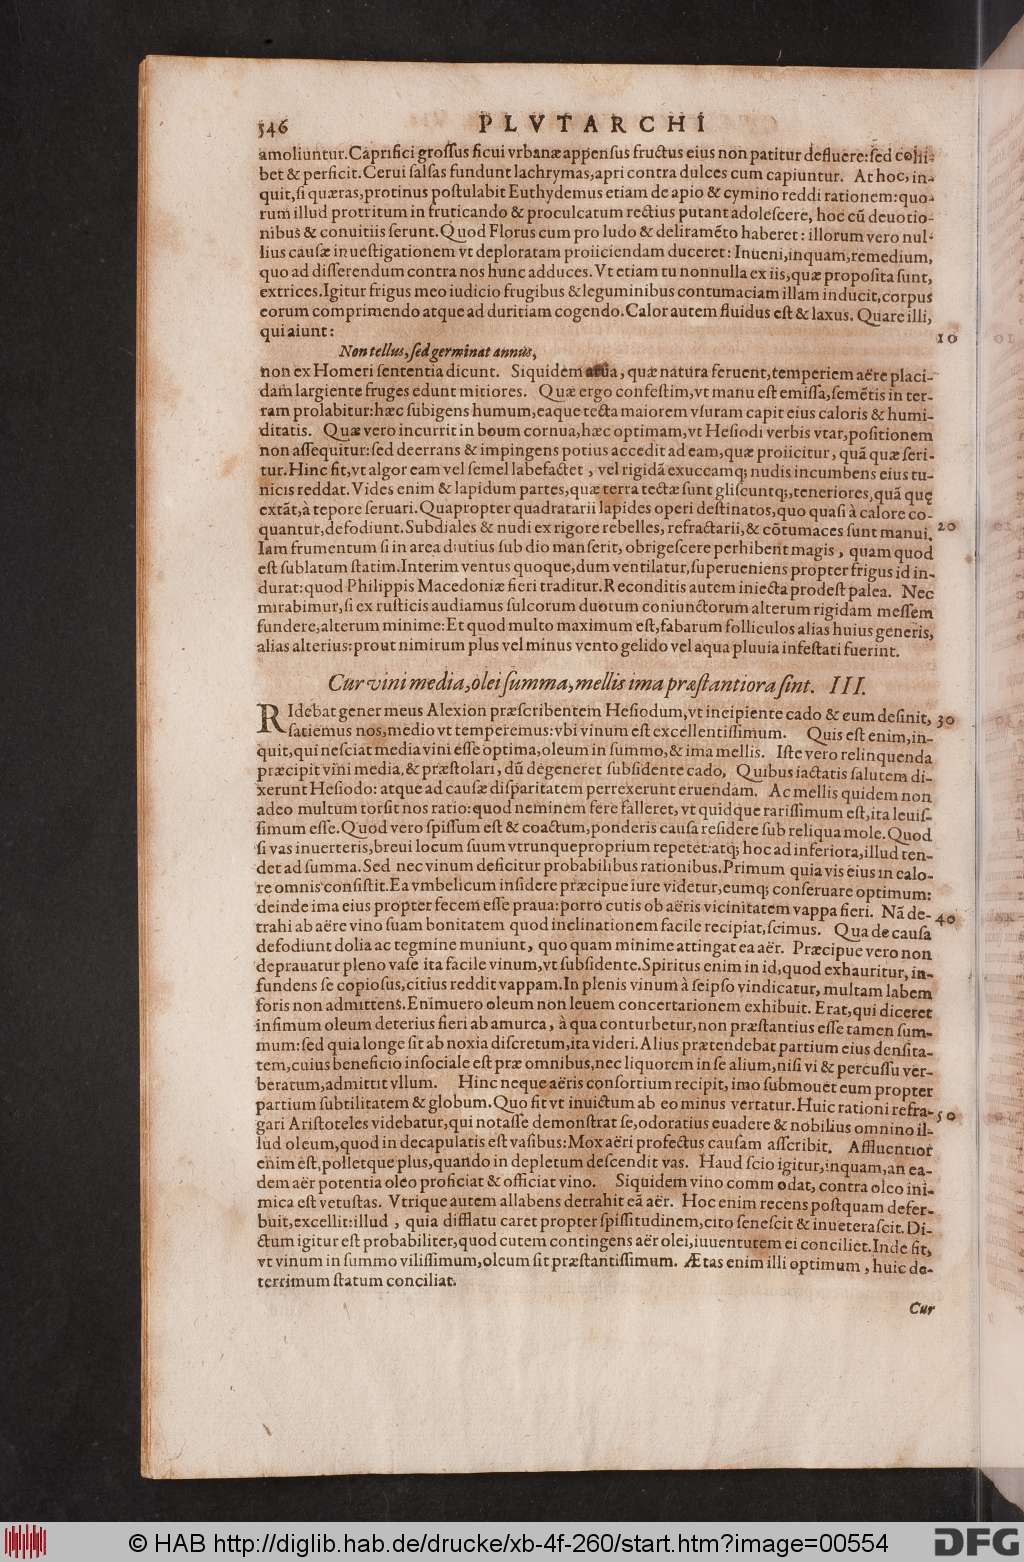 546 PLVTARCHI
amoliuntur.Caprifici grossus ficui vrbanæ appensus fructus eius non patitur defluere:sed cohi-
bet & perficit.Cerui salsas fundunt lachrymas,apri contra dulces cum capiuntur. At hoc, in-
quit,si quæras,protinus postulabit Euthydemus etiam de apio & cymino reddi rationem:quo-
rum illud protritum in fruticando & proculcatum rectius putant adolescere, hoc cũ deuotio-
nibus & conuitiis serunt.Quod Florus cum pro ludo & deliramẽto haberet: illorum vero nul-
lius causæ inuestigationem vt deploratam proiiciendam duceret: Inueni,inquam,remedium,
quo ad disserendum contra nos hunc adduces.Vt etiam tu nonnulla ex iis,quæ proposita sunt,
extrices.Igitur frigus meo iudicio frugibus & leguminibus contumaciam illam inducit,corpus
eorum comprimendo atque ad duritiam cogendo.Calor autem fluidus est & laxus. Quare illi,
qui aiunt:
10
Non tellus, sed germinat annus,
non ex Homeri sententia dicunt. Siquidem arua, quæ natura feruent,temperiem aëre placi-
dam largiente fruges edunt mitiores. Quæ ergo confestim,vt manu est emissa,semẽtis in ter-
ram prolabitur:hæc subigens humum,eaque tecta maiorem vsuram capit eius caloris & humi-
ditatis. Quæ vero incurrit in boum cornua,hæc optimam,vt Hesiodi verbis vtar,positionem
non assequitur:sed deerrans & impingens potius accedit ad eam,quæ proiicitur, quã quæ seri-
tur.Hinc fit,vt algor eam vel semel labefactet , vel rigidã exuccamq; nudis incumbens eius tu-
nicis reddat.Vides enim & lapidum partes,quæ terra tectæ sunt gliscuntq;,teneriores,quã quę
extãt,à tepore seruari.Quapropter quadratarii lapides operi destinatos,quo quasi à calore co-
quantur,defodiunt.Subdiales & nudi ex rigore rebelles, refractarii,& cõtumaces sunt manui. 20
Iam frumentum si in area diutius sub dio manserit, obrigescere perhibent magis , quam quod
est sublatum statim.Interim ventus quoque,dum ventilatur,superueniens propter frigus id in-
durat:quod Philippis Macedoniæ fieri traditur.Reconditis autem iniecta prodest palea. Nec
mirabimur,si ex rusticis audiamus sulcorum duorum coniunctorum alterum rigidam messem
fundere,alterum minime:Et quod multo maximum est,fabarum folliculos alias huius generis,
alias alterius:prout nimirum plus vel minus vento gelido vel aqua pluuia infestati fuerint.
Cur vini media,olei summa,mellis ima præstantiora sint. III.
RIdebat gener meus Alexion præscribentem Hesiodum,vt incipiente cado & eum desinit, 30
satiemus nos,medio vt temperemus:vbi vinum est excellentissimum. Quis est enim,in-
quit,qui nesciat media vini esse optima,oleum in summo,& ima mellis. Iste vero relinquenda
præcipit vini media,& præstolari, dũ degeneret subsidente cado, Quibus iactatis salutem di-
xerunt Hesiodo: atque ad causæ disparitatem perrexerunt eruendam. Ac mellis quidem non
adeo multum torsit nos ratio:quod neminem fere falleret,vt quidque rarissimum est,ita leuis-
simum esse.Quod vero spissum est & coactum,ponderis causa residere sub reliqua mole.Quod
si vas inuerteris,breui locum suum vtrunque proprium repetet:atq; hoc ad inferiora,illud ten-
det ad summa.Sed nec vinum deficitur probabilibus rationibus.Primum quia vis eius in calo-
re omnis consistit.Ea vmbelicum insidere præcipue iure videtur,eumq; conseruare optimum:
deinde ima eius propter fecem esse praua:porro cutis ob aëris vicinitatem vappa fieri. Nã de- 40
trahi ab aëre vino suam bonitatem quod inclinationem facile recipiat,scimus. Qua de causa
defodiunt dolia ac tegmine muniunt, quo quam minime attingat ea aër. Præcipue vero non
deprauatur pleno vase ita facile vinum,vt subsidente.Spiritus enim in id,quod exhauritur, in-
fundens se copiosus,citius reddit vappam.In plenis vinum à seipso vindicatur, multam labem
foris non admittens.Enimuero oleum non leuem concertationem exhibuit. Erat,qui diceret
infimum oleum deterius fieri ab amurca, à qua conturbetur,non præstantius esse tamen sum-
mum:sed quia longe sit ab noxia discretum,ita videri.Alius prætendebat partium eius densita-
tem,cuius beneficio insociale est præ omnibus,nec liquorem in se alium,nisi vi & percussu ver-
beratum,admittit vllum. Hinc neque aëris consortium recipit, imo submouet eum propter
partium subtilitatem & globum.Quo fit vt inuictum ab eo minus vertatur.Huic rationi refra- 50
gari Aristoteles videbatur,qui notasse demonstrat se,odoratius euadere & nobilius omnino il-
lud oleum,quod in decapulatis est vasibus:Mox aëri profectus causam asscribit. Affluentior
enim est,polletque plus,quando in depletum descendit vas. Haud scio igitur,inquam,an ea-
dem aër potentia oleo proficiat & officiat vino. Siquidem vino commodat, contra oleo ini-
mica est vetustas. Vtrique autem allabens detrahit eã aër. Hoc enim recens postquam defer-
buit,excellit:illud , quia difflatu caret propter spissitudinem,cito senescit & inueterascit.Di-
ctum igitur est probabiliter,quod cutem contingens aër olei,iuuentutem ei conciliet.Inde fit,
vt vinum in summo vilissimum,oleum sit præstantissimum. Ætas enim illi optimum , huic de-
terrimum statum conciliat.
Cur
© HAB http://diglib.hab.de/drucke/xb-4f-260/start.htm?image=00554
DFG